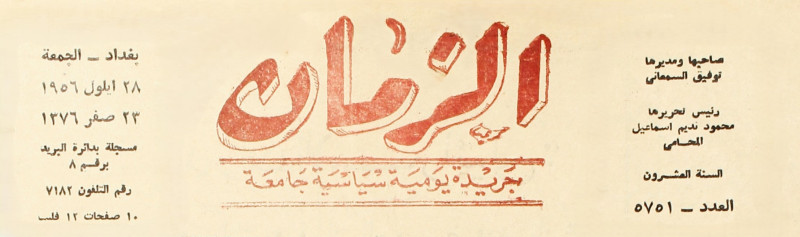 صاحبها ومديرها
توفيق السمعاني
رئيس تحريرها
محمود نديم اسماعيل
المحامي
السنة العشرون
العدد ــ ٥٧٥١
الزمان
جريدة يومية سياسية جامعة
بغداد ــ الجمعة
٢٨ ايلول ١٩٥٦
٢٣ صفر ١٣٧٦
مسجلة بدائرة البريد
برقم ٨
رقم التلفون ٧١٨٢
١٠ صفحات ١٢ فلس